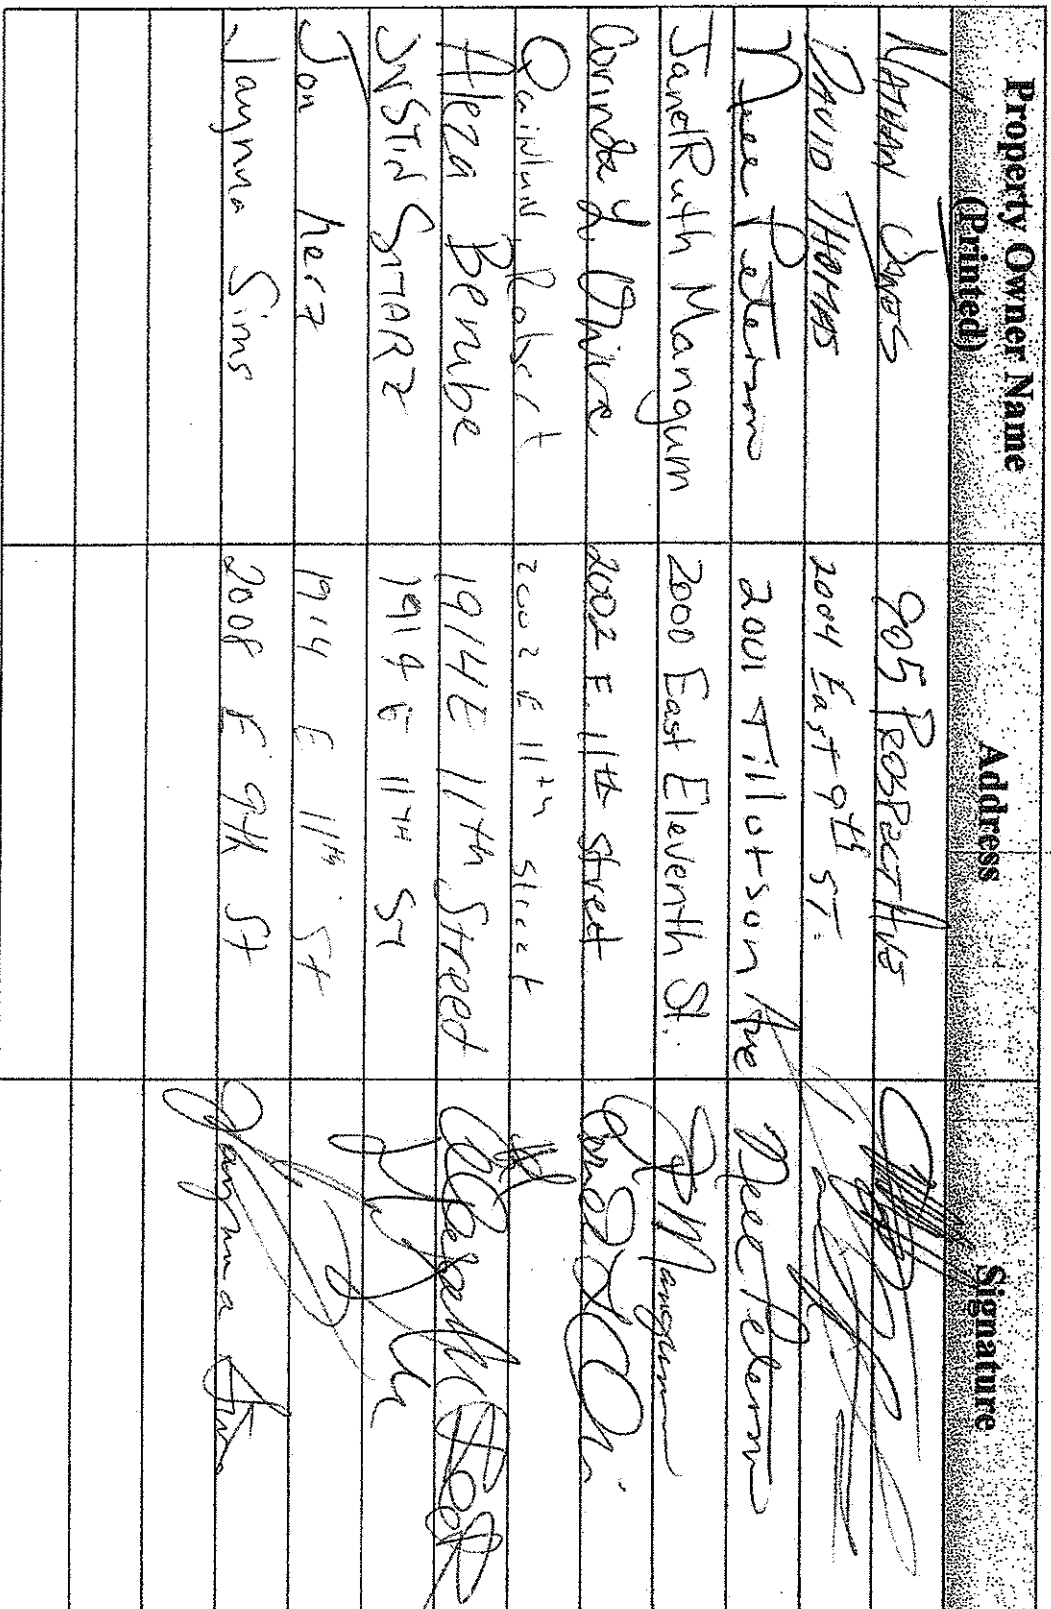 Property Owner Name (Printed) Address Signature
NATHAN JONES 905 PROSPECT AVE
DAVID THOMAS 2004 East 9th ST.
Nnee Peterson 2001 Tillotson Ave Nnee Peterson
Janet Ruth Mangum 2000 East Eleventh St. JRMangum
Corinda L. 2002 E. 11th street
Quinlan, Robert 2002 E 11th street
Aleza Berube 1914 E 11th Street
JUSTIN SITARZ 1914 E 11TH ST
Jon herz 1914 E 11th St
Jaynna Sims 2008 E 9th St Jaynna Sims